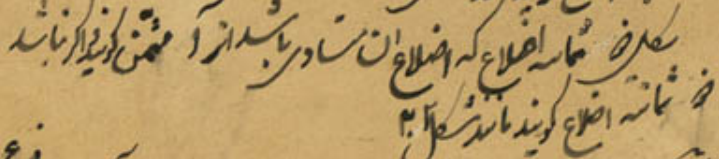 شکل ذ ثمانیه اضلاع که اضلاع آن متساوی باشد انرا مثمن کویند و اکر نباشد
ذ ثمانیه اضلاع کویند مانند شکل